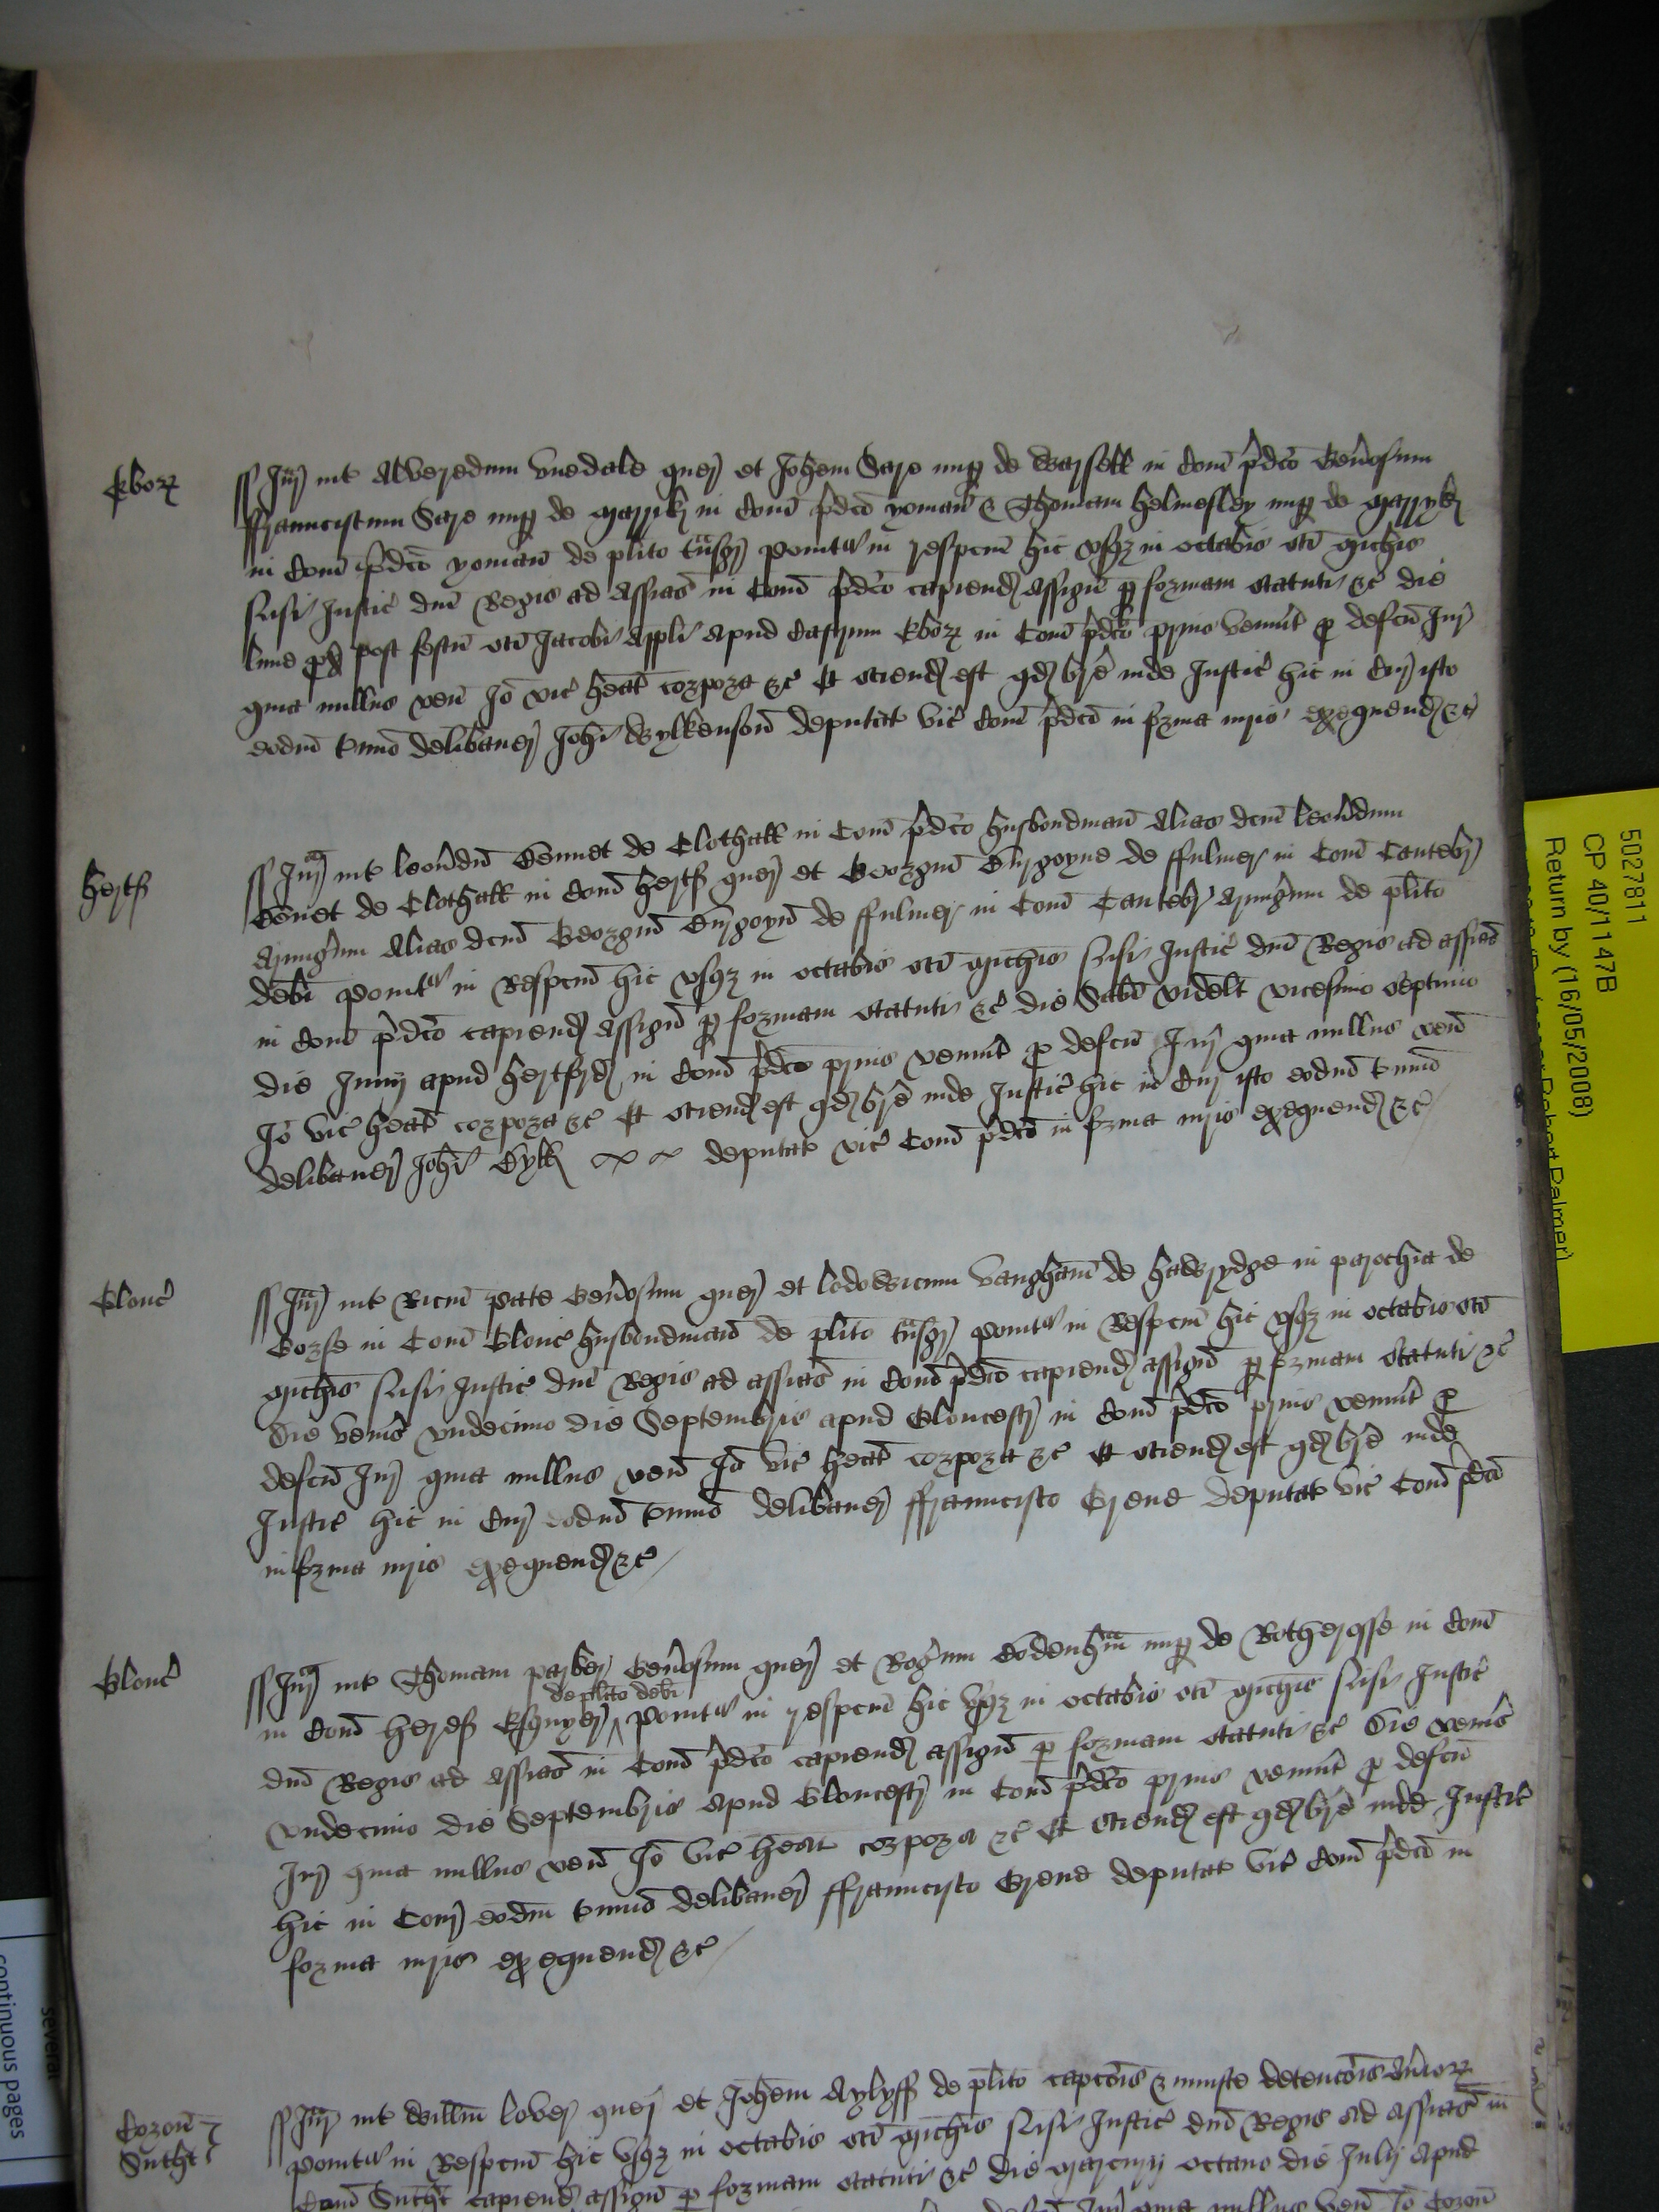 Eborꝝ
ss Jur̃ int̃ Alveredum Unedale quer̃ et Joh̃em Sare nup̱ de Warsell in Com̃ p̃dc̃o Gen̓osum
ffranciscum Sare nup̱ de Marrik in Com̃ p̃dc̃o yoman̄ & Thomam Helmesley nup̱ de Marryk
in Com̃ p̃dc̃o yoman̄ de pl̃ito tñsgr̃ ponit᷑ in respc̃m hic usqꝫ in octabis sc̃i Mich̃is
Nisi Justic̓ dn̄i Regis ad Assis̃as in Com̃ p̃dc̃o capiend̃ assign̄ p̱ formam statuti &c̓ die
lune px̃ post festū sc̃i Jacobi Apl̃i apud Castrum Eborꝝ in Com̃ p̃dc̃o prius ven̓int ꝓ defc̃u Jur̃
quia nullus ven̄ Jõ vic̓ h̃eat corpora &c̓ Et sciend̃ est qd̃ br̃e inde Justic̓ hic in Cur̃ isto
eodm̄ t̓mino delib̃auer̃ Joh̃i Wylkenson̄ deputat̓ vic̓ Com̃ p̃dc̃i in forma iuris exequend̃ &c̓
Hertf̃
ss Jur̃ int̃ Leon̓dū Bennet de Clothall in Com̃ p̃dc̃o husbondman̄ alias dc̃m Leon̓dum
Bennet de Clothall in Com̃ Hertf̃ quer̃ et Georgiū Burgoyne de ffulmer in Com̃ Cantebr̃
Armig̓um alias dc̃m Georgiū Burgoyn̄ de ffulmer in Com̃ Cantebr̃ Armig̓um de pl̃ito
deb̃i ponit᷑ in Respc̃m hic usqꝫ in octabis sc̃i Mich̃is Nisi Justic̓ dn̄i Regis ad assis̃as
in Com̃ p̃dc̃o capiend̃ assign̄ p̱ formam statuti &c̓ die Sab̃i videl̃t vicesimo septimo
die Junij apud Hertford̃ in Com̃ p̃dc̃o prius ven̓int ꝓ defc̃u Jur̃ quia nullus ven̄
Jõ vic̓ h̃eat corpora &c̓ Et sciend̃ est qd̃ br̃e inde Justic̓ hic in Cur̃ isto eodm̄ t̓mino
delib̃auer̃ Joh̃i Byll deputat̓ vic̓ Com̃ p̃dc̃i in forma iuris exequend̃ &c̓
Glouc̓
ss Jur̃ int̃ Ric̃m Pate Gen̓osum quer̃ et Lodowicum Vaugham̄ de Hawrydge in parochia de
Corse in Com̃ Glouc̓ husbondman̄ de pl̃ito tñsgr̃ ponit᷑ in Respc̃m hic usqꝫ in octabis sc̃i
Mich̃is Nisi Justic̓ dn̄i Regis ad assis̃as in Com̃ p̃dc̃o capiend̃ assign̄ p̱ formam statuti &c̓
die ven̓is undecimo die Septembris apud Gloucestr̃ in Com̃ p̃dc̃o prius ven̓int ꝓ
defc̃u Jur̃ quia nullus ven̄ Jõ vic̓ h̃eat corpora &c̓ Et sciend̃ est qd̃ br̃e inde
Justic̓ hic in Cur̃ eodm̄ t̓mino delib̃auer̃ ffrancisco Grene deputat̓ vic̓ Com̃ p̃dc̃i
in forma iuris exequend̃ &c̓
Glouc̓
ss Jur̃ int̃ Thomam Parker Gen̓osum quer̃ et Rog̓um Bodenh̃m nup̱ de Rotherysse in Com̃
in Com̃ Heref̃ Esquyer̃ de pl̃ito deb̃i ponit᷑ in respc̃m hic usqꝫ in octabis sc̃i Mich̃is Nisi Justic̓
dn̄i Regis ad assis̃as in Com̃ p̃dc̃o capiend̃ assign̄ p̱ formam statuti &c̓ die ven̓is
undecimo die Septembris apud Gloucestr̃ in Com̃ p̃dc̃o prius ven̓int ꝓ defc̃u
Jur̃ quia nullus ven̄ Jõ vic̓ h̃eat corpora &c̓ Et sciend̃ est qd̃ br̃e inde Justic̓
hic in Cur̃ eodm̄ t̓mino delib̃auer̃ ffrancisco Grene deputat̓ vic̓ Com̃ p̃dc̃i in
forma iuris exequend̃ &c̓
Coron̄
Sutht̓
ss Jur̃ int̃ Will̃m Lover quer̃ et Joh̃em Aylyff de pl̃ito capc̃ois & iniuste detenc̃ois Au̓iorꝝ
ponit᷑ in Respc̃m hic usqꝫ in octabis sc̃i Mich̃is Nisi Justic̓ dn̄i Regis ad assis̃as in
Com̃ Sutht̓ capiend̃ assign̄ p̱ formam statuti &c̓ die Marcurij octavo die Julij apud
defc̃u Jur̃ quia nullus ven̄ Jõ Coron̄
5027811
CP 40/1147B
Return by (16/05/2008)
Robert Palmer)
several
continuous pages